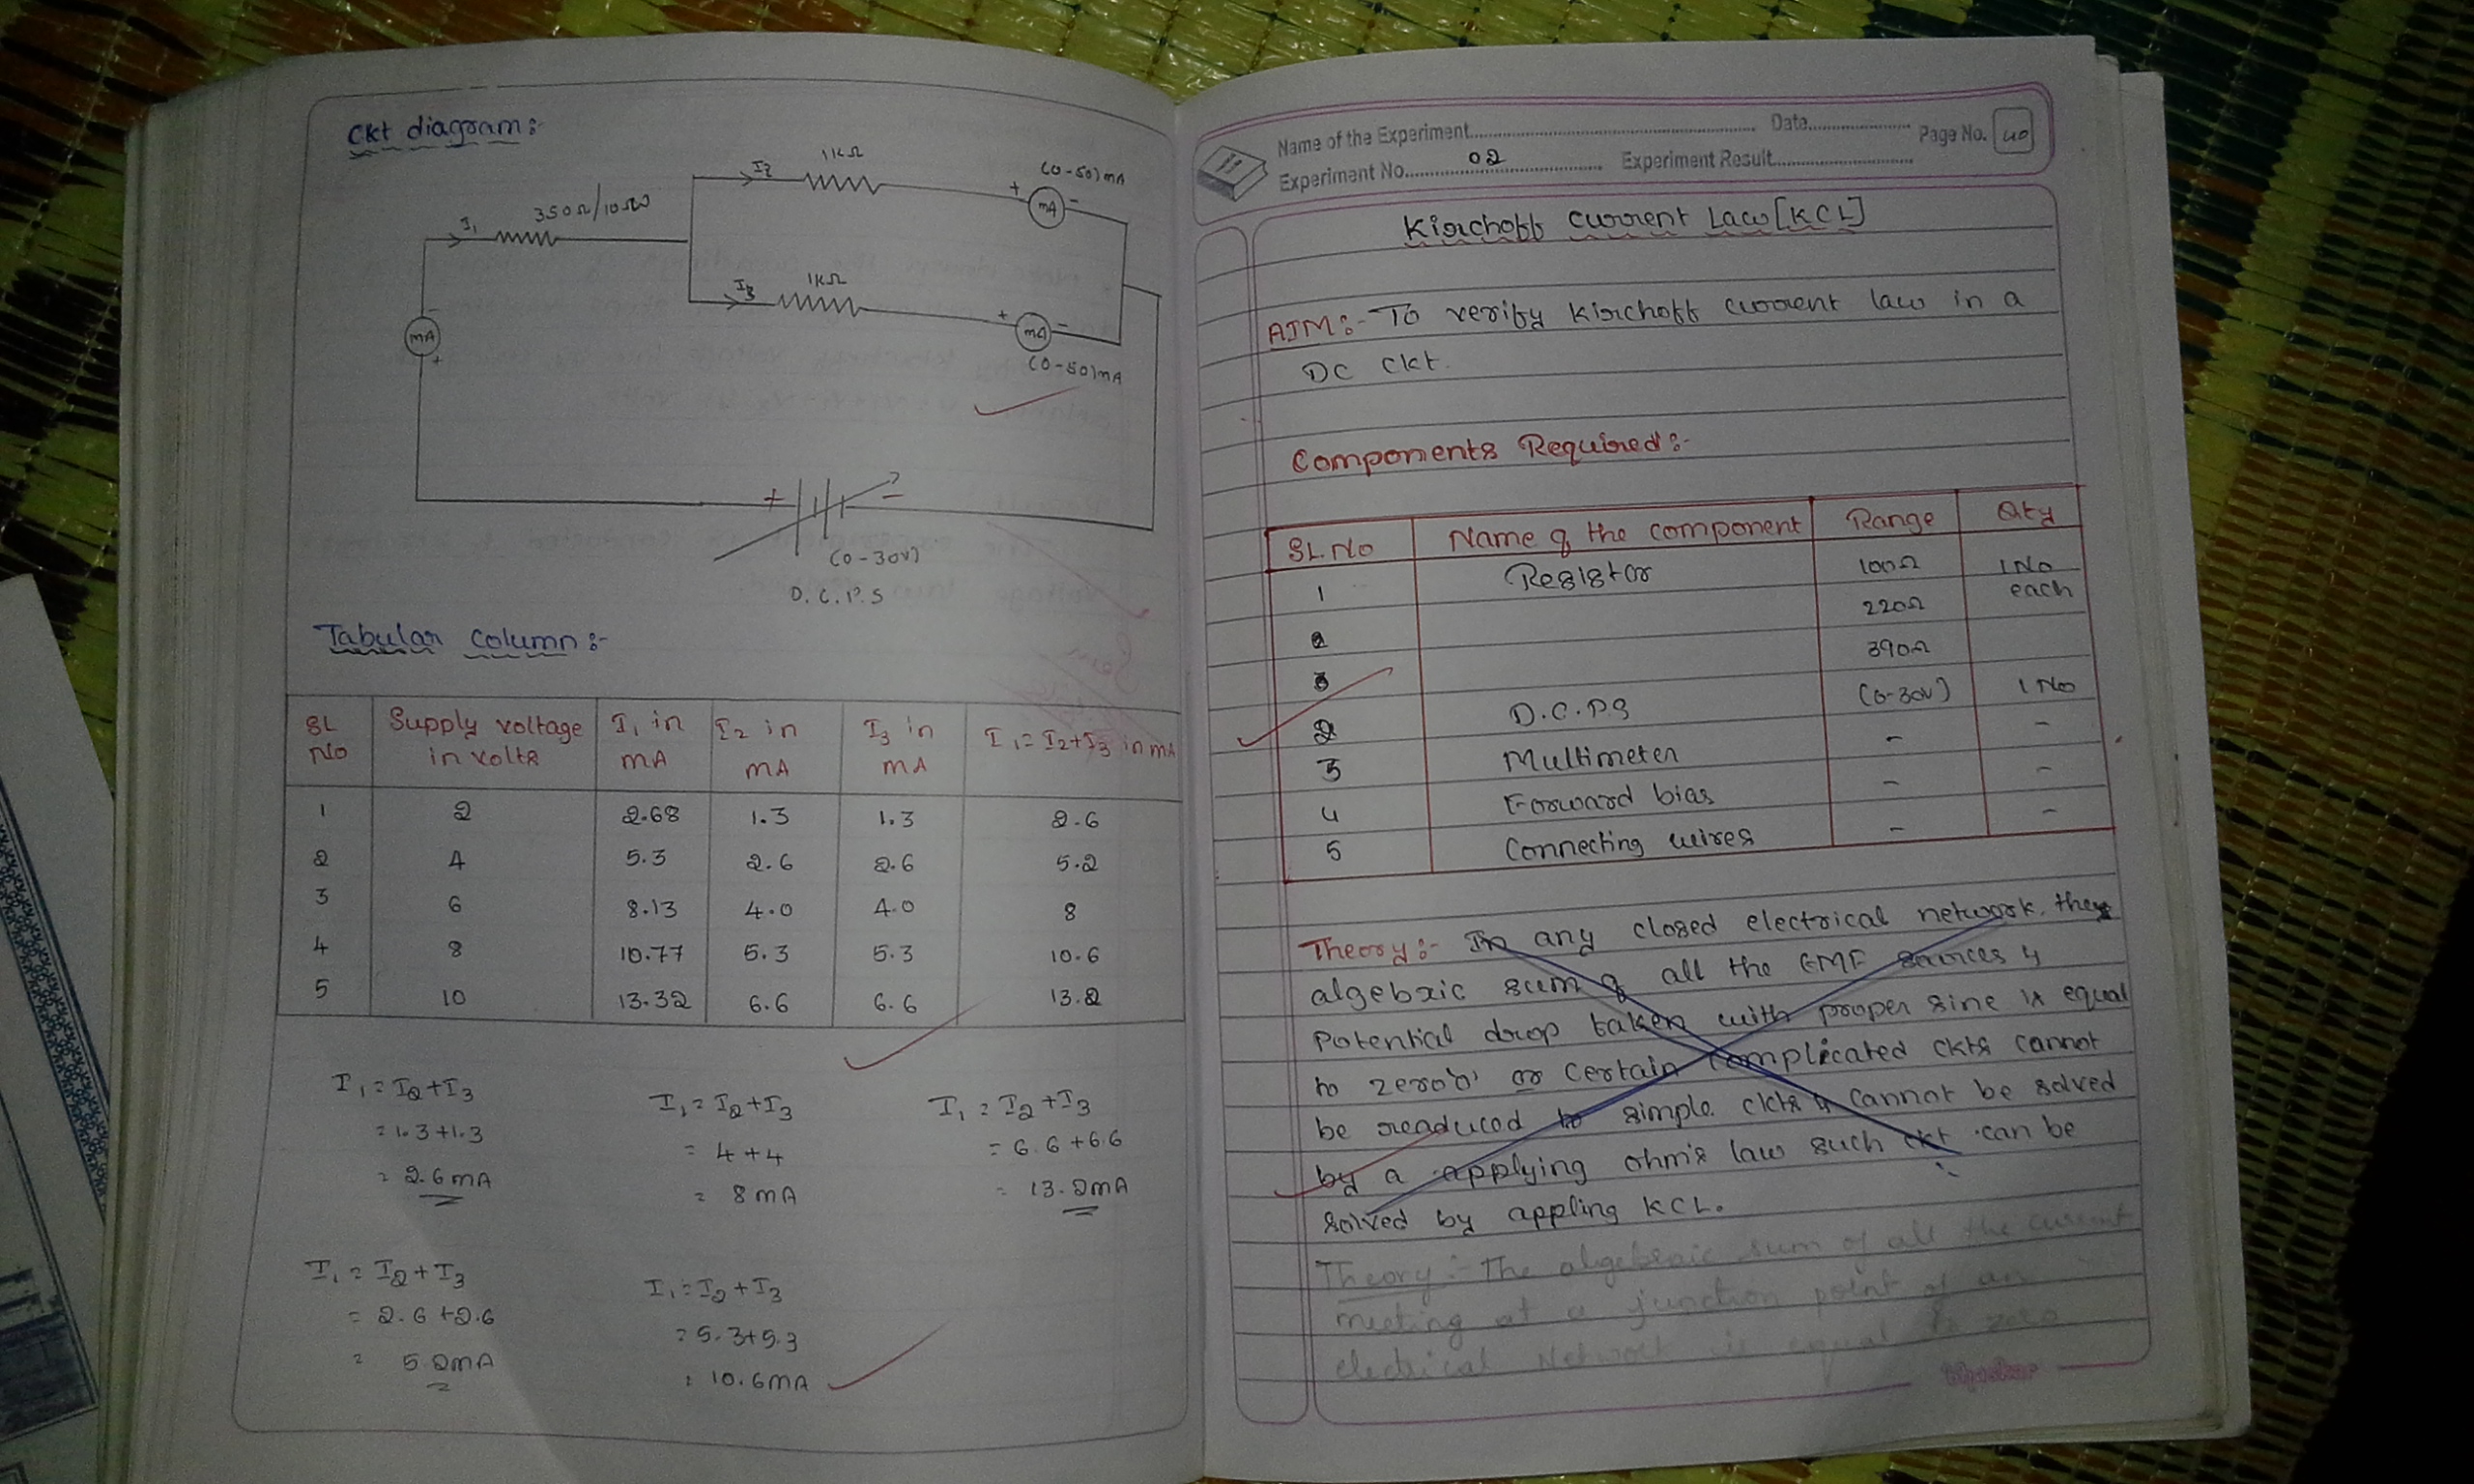 Ckt diagram:-
I1
350Ω/10W
I2
1KΩ
(0-50)mA
+
mA
-
I3
1KΩ
+
mA
-
(0-50)mA
-
mA
+
+
-
(0-30V)
D.C.P.S
Tabular column:-
SL No | Supply voltage in volts | I1 in mA | I2 in mA | I3 in mA | I1=I2+I3 in mA
1 | 2 | 2.68 | 1.3 | 1.3 | 2.6
2 | 4 | 5.3 | 2.6 | 2.6 | 5.2
3 | 6 | 8.13 | 4.0 | 4.0 | 8
4 | 8 | 10.77 | 5.3 | 5.3 | 10.6
5 | 10 | 13.32 | 6.6 | 6.6 | 13.2
I1=I2+I3
=1.3+1.3
=2.6mA
I1=I2+I3
=4+4
=8mA
I1=I2+I3
=6.6+6.6
=13.2mA
I1=I2+I3
=2.6+2.6
=5.2mA
I1=I2+I3
=5.3+5.3
=10.6mA
Name of the Experiment Date Page No. 40
Experiment No. 02 Experiment Result
Kirchoff current Law [KCL]
AIM:- To verify kirchoff current law in a
DC Ckt.
Components Required:-
SL.No | Name of the component | Range | Qty
1 | Resistor | 100Ω | 1No each
2 | 220Ω
3 | 390Ω
2 | D.C.P.S | (0-30V) | 1No
3 | Multimeter | - | -
4 | Forward bias | - | -
5 | Connecting wires | - | -
Theory:- In any closed electrical network, the
algebric sum of all the EMF sources &
Potential drop taken with proper sine is equal
to zero'o' or certain complicated ckts cannot
be readuced to simple ckts & cannot be solved
by a applying ohm's law such ckt can be
solved by appling KCL.
Theory:- The algebraic sum of all the current
meeting at a junction point of an
electrical Network is equal to zero